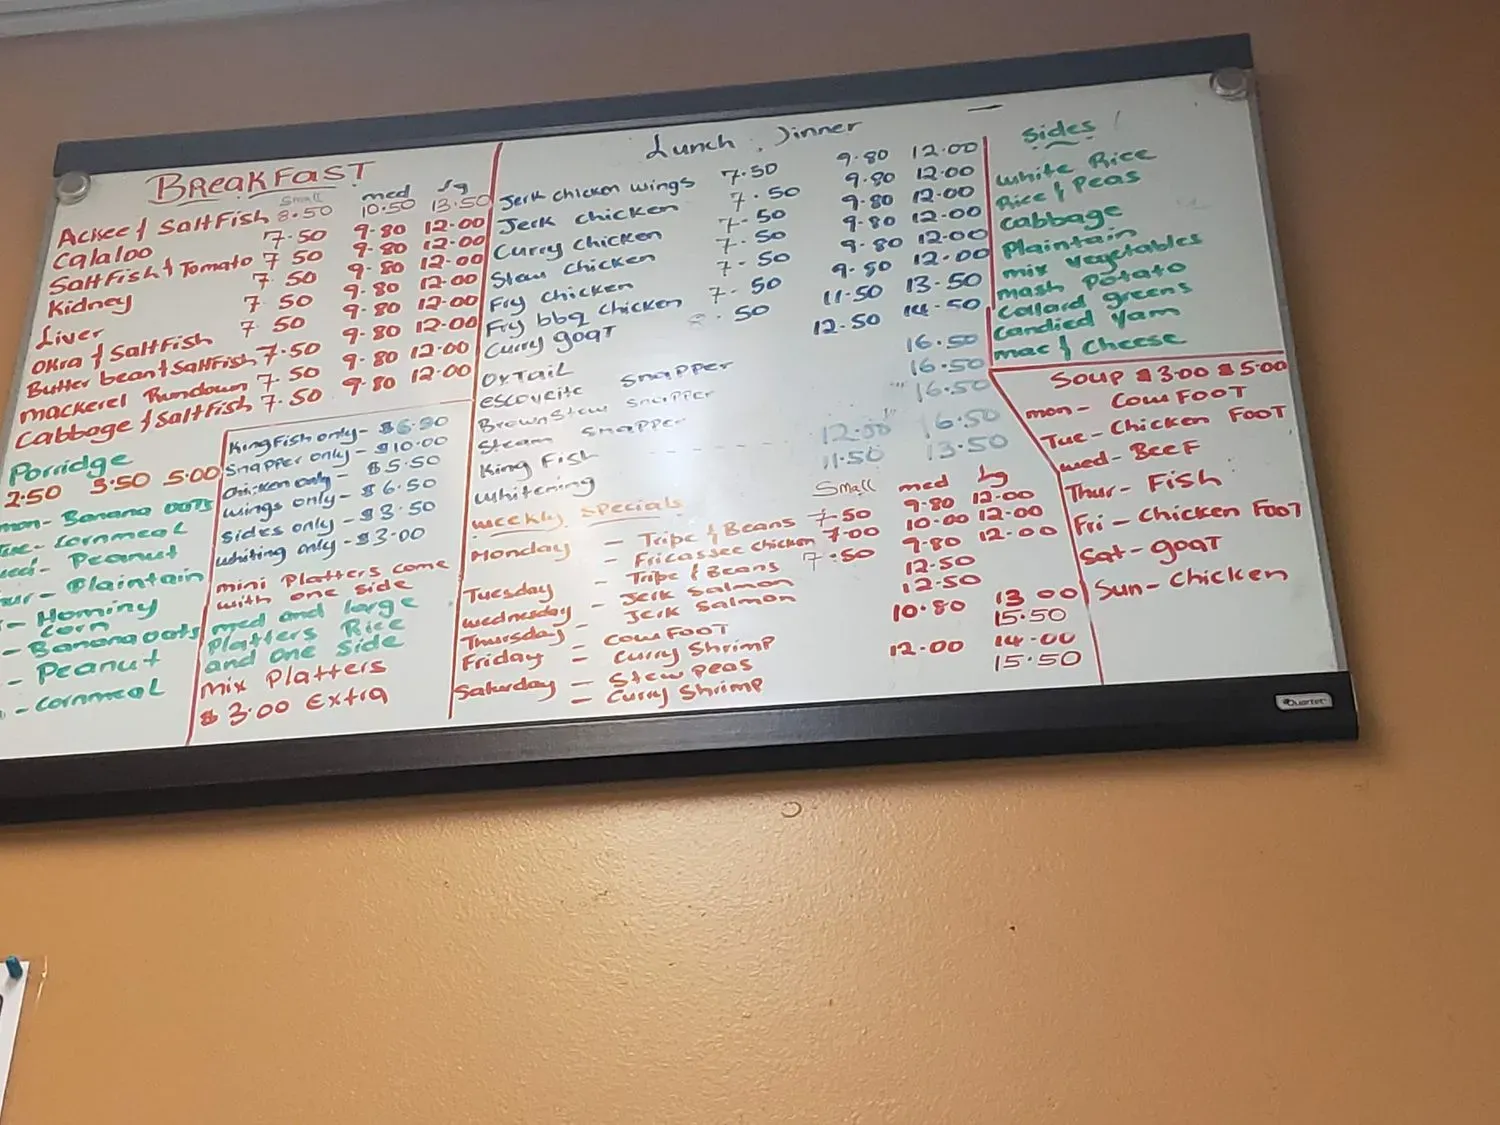 BREAKFAST
small med lg
Ackee & SaltFish 8.50 10.50 13.50
Calaloo 7.50 9.80 12.00
SaltFish & Tomato 7.50 9.80 12.00
Kidney 7.50 9.80 12.00
Liver 7.50 9.80 12.00
Okra & SaltFish 7.50 9.80 12.00
Butter bean & SaltFish 7.50 9.80 12.00
mackerel Rundown 7.50 9.80 12.00
Cabbage & SaltFish 7.50 9.80 12.00
Porridge
2.50 3.50 5.00
mon- Banana oats
Tue- cornmeal
wed- Peanut
Thur- Plaintain
- Hominy
corn
- Banana oats
- Peanut
- cornmeal
King Fish only- $6.90
Snapper only- $10.00
chicken only- $5.50
wings only- $6.50
sides only- $3.50
whiting only- $3.00
mini Platters come
with one side
med and large
Platters Rice
and one side
mix Platters
$3.00 Extra
Lunch, Dinner
Jerk chicken wings 7.50 9.80 12.00
Jerk chicken 7.50 9.80 12.00
Curry chicken 7.50 9.80 12.00
Stew chicken 7.50 9.80 12.00
Fry chicken 7.50 9.80 12.00
Fry bbq chicken 7.50 9.50 12.00
Curry goat .50 11.50 13.50
OxTail 12.50 14.50
escoveite Snapper 16.50
BrownStew Snapper 16.50
Steam Snapper 16.50
King Fish 12.00 16.50
whitening 11.50 13.50
weekly specials
Small med lg
Monday - Tripe & Beans 7.50 9.80 12.00
- Fricassee chicken 7.00 10.00 12.00
Tuesday - Tripe & Beans 7.50 9.80 12.00
wednesday - Jerk Salmon 12.50
Thursday - Jerk Salmon 12.50
Friday - cow FOOT 10.80 13.00
- Curry Shrimp 15.50
Saturday - Stew peas 12.00 14.00
- Curry Shrimp 15.50
Sides
white Rice
Rice & Peas
Cabbage
Plaintain
mix vegetables
mash Potato
collard greens
Candied Yam
mac & Cheese
Soup $3.00 $5.00
mon- Cow FOOT
Tue- Chicken FOOT
wed- BeeF
Thur- Fish
Fri- Chicken FooT
Sat- goaT
Sun- Chicken
Quartet